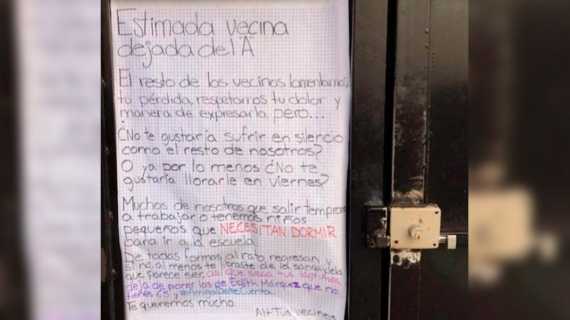 Estimada vecina
dejada del A
El resto de los vecinos lamentamos
tu pérdida, respetamos tu dolor y
manera de expresarlo pero...
¿No te gustaría sufrir en silencio
como el resto de nosotros?
O ya por lo menos ¿No te
gustaría llorarle en viernes?
Y
Muchos de nosotros que salir temprano
a trabajar o tenemos niños
pequeños que NECESITAN DORMIR
para ir a la escuela
De todas formas al rato regresan y
si no, al menos te libraste de la
que parece ser, así que seca tus lágrimas,
deja de poner las de Edith Márquez que no
tienes 45 y
Te queremos mucho.
Att: Tus vecinos